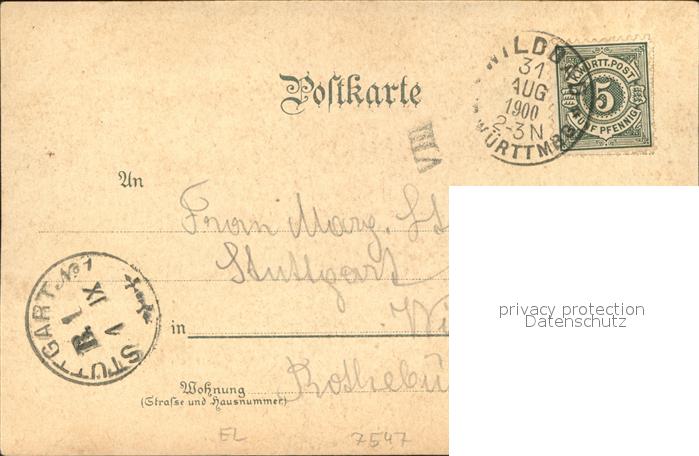 WILDBAD
31
AUG
1900
2-3 N
WÜRTTMBG
K. WÜRTT. POST
5
FÜNF PFENNIG
Postkarte
VIII
An
Frau Marg.
Stuttgart
in
Wohnung
(Strasse und Hausnummer)
STUTTGART No 1
1 IX
B 1
privacy protection
Datenschutz
EL
7547